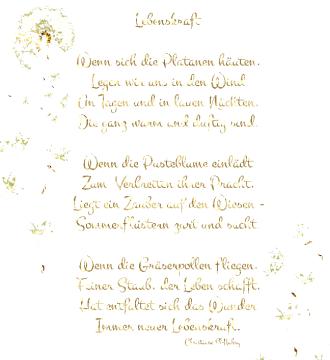 Lebenskraft
Wenn sich die Platanen häuten.
Legen wir uns in den Wind
In Tagen und in lauen Nächten.
Die ganz warm und duftig sind.
Wenn die Pusteblume einlädt
Zum Verbreiten ihrer Pracht.
Liegt ein Zauber auf den Wiesen -
Sommerflüstern zart und sacht
Wenn die Gräserpollen fliegen.
Feiner Staub. der Leben schafft.
Hat entfaltet sich das Wunder
Immer neuer Lebenskraft.